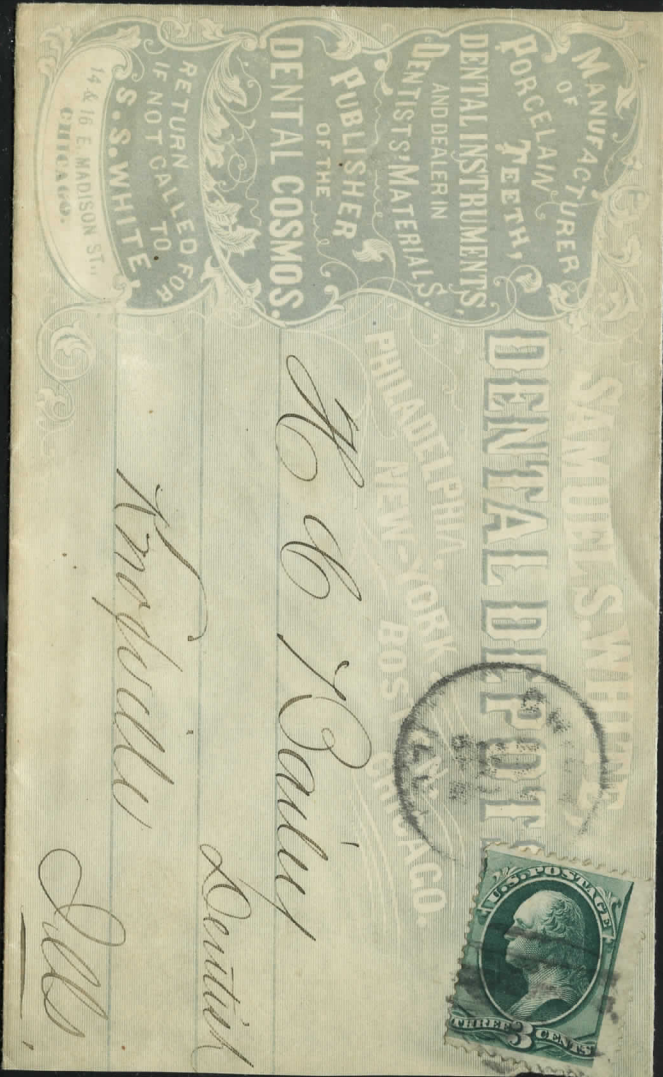 MANUFACTURER
OF
PORCELAIN
TEETH,
DENTAL INSTRUMENTS,
AND DEALER IN
DENTISTS' MATERIALS.
PUBLISHER
OF THE
DENTAL COSMOS.
RETURN
IF NOT CALLED FOR
TO
S. S. WHITE,
14 & 16 E. MADISON ST.,
CHICAGO.
SAMUEL S. WHITE,
DENTAL DEPOTS
PHILADELPHIA,
NEW-YORK
BOSTON,
CHICAGO.
U.S. POSTAGE
THREE 3 CENTS
H C Bailey
Dentist
Knoxville
Ills,